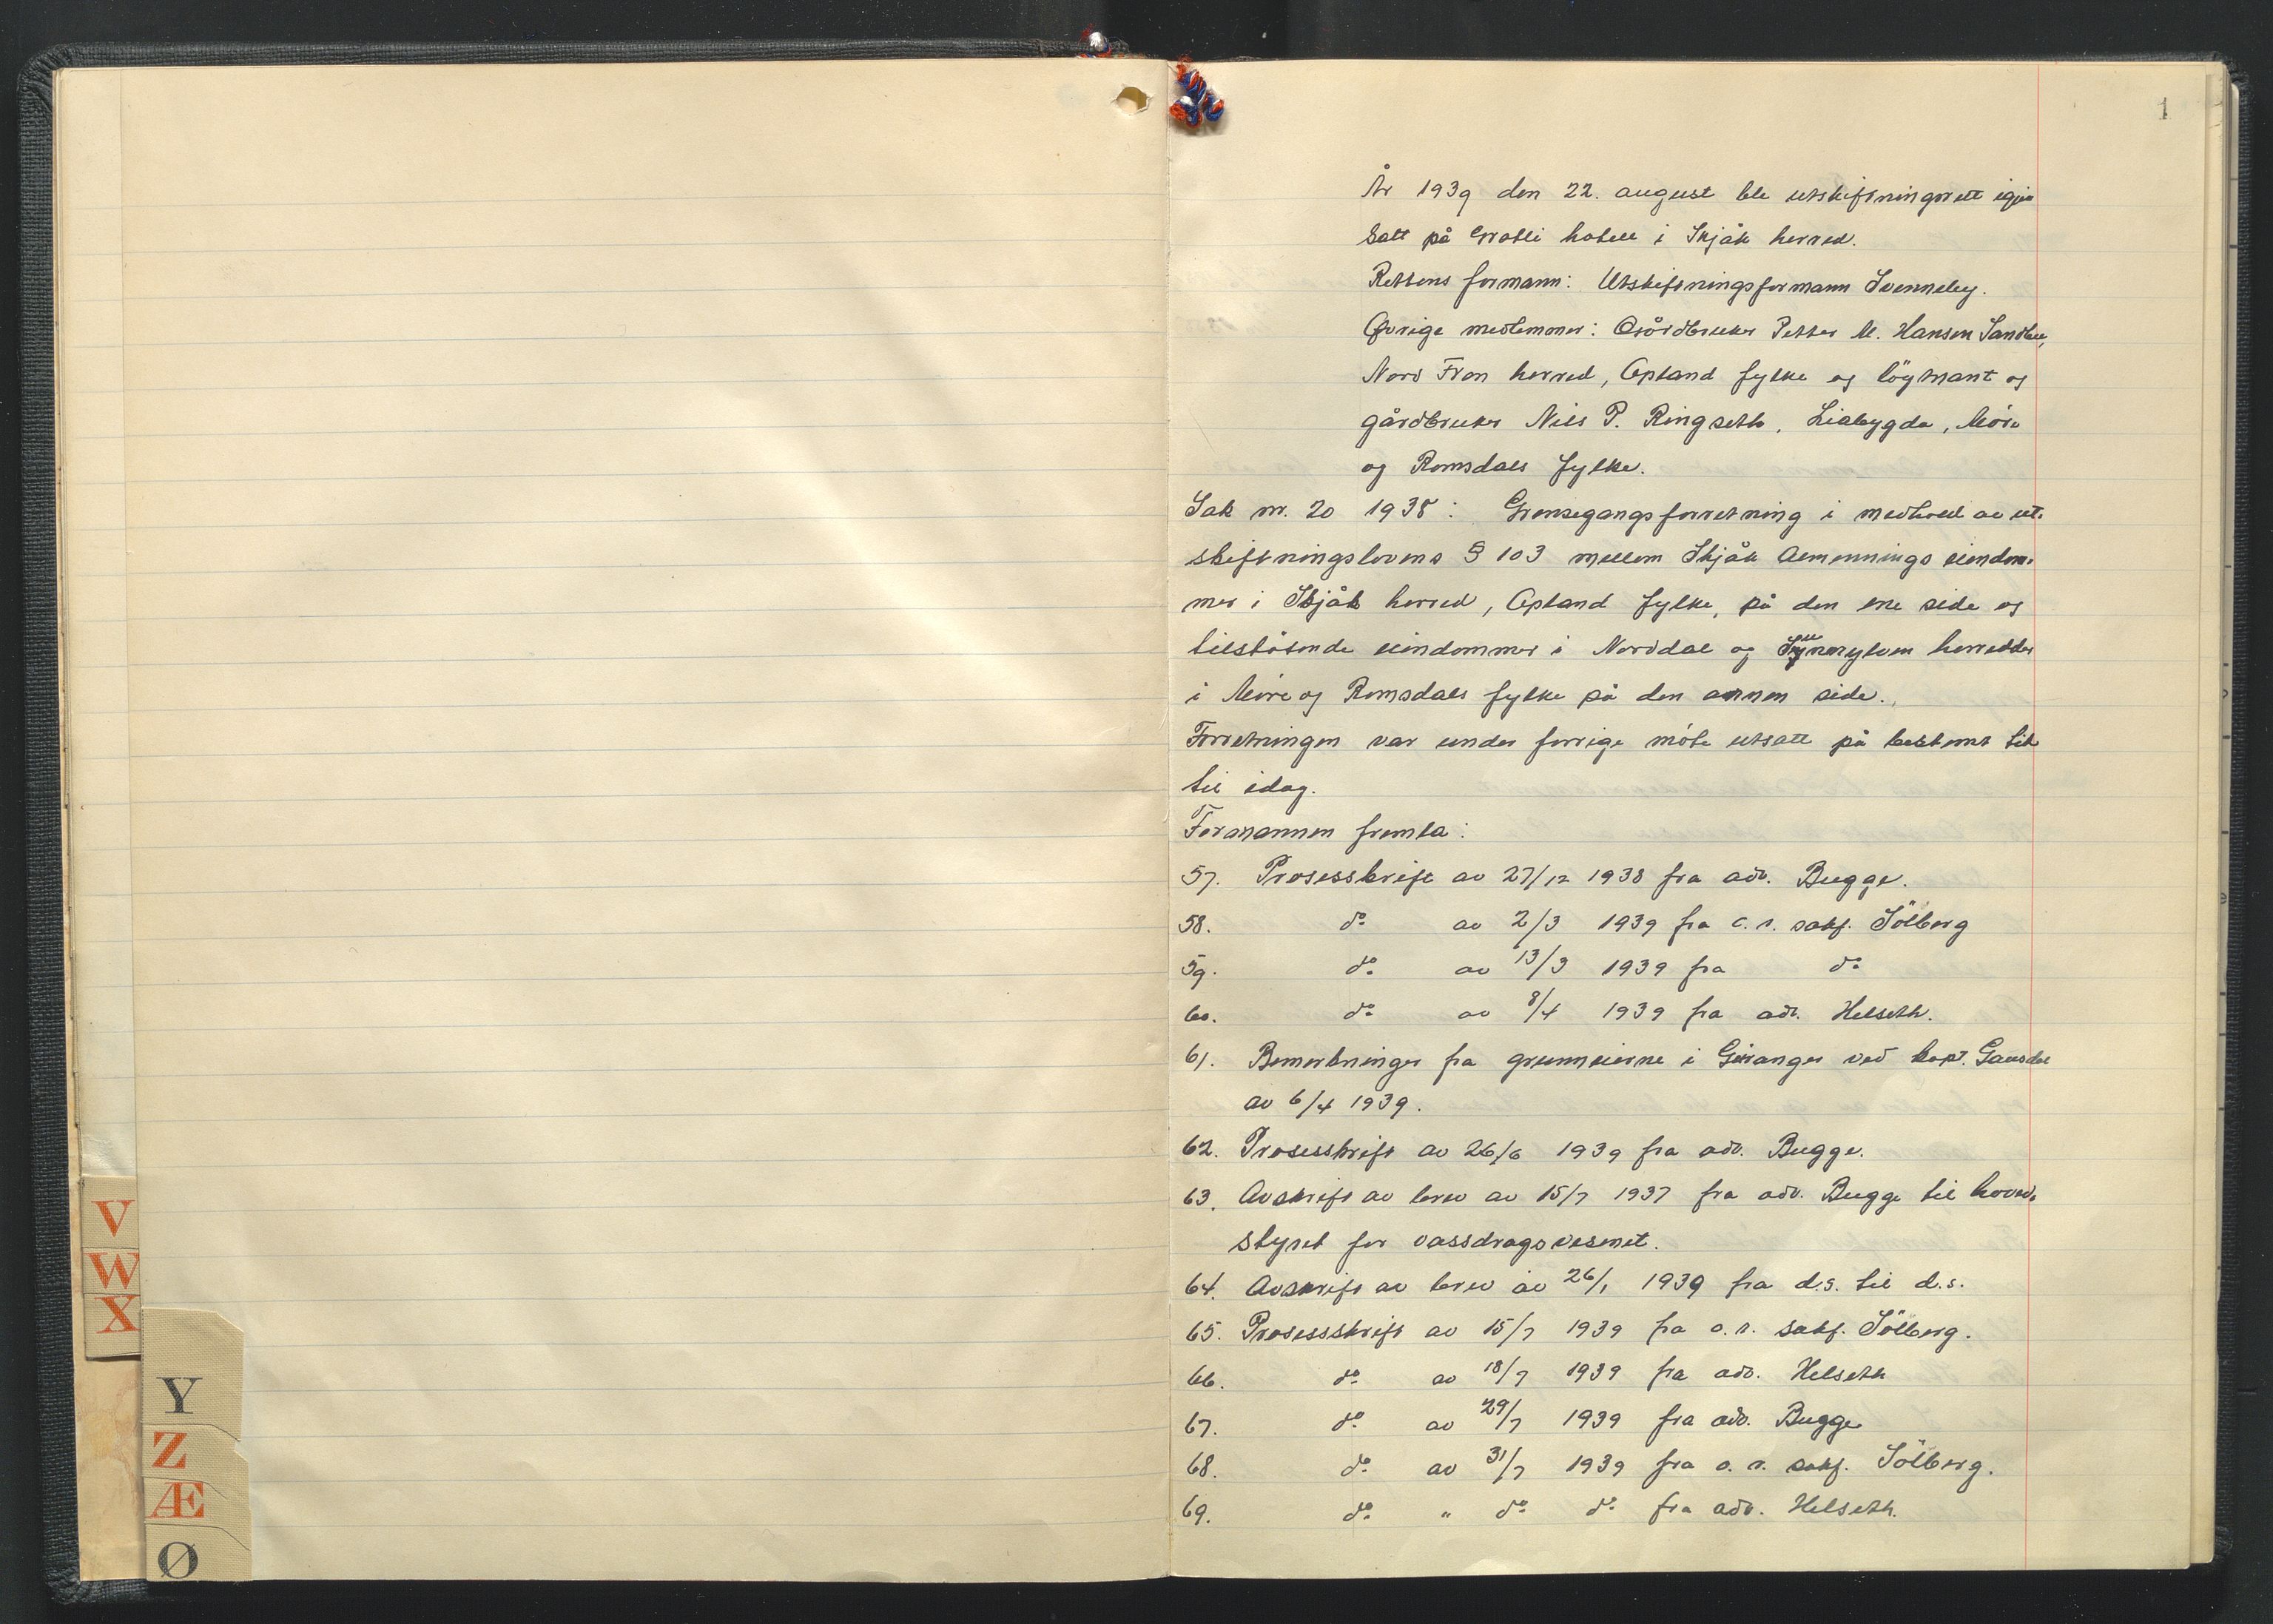 1
År 1939 den 22. august ble utskiftningsrett igjen
satt på Grotli hotell i Skjåk herred.
Rettens formann: Utskiftningsformann Svenneby.
Øvrige medlemmer: Gårdbruker Petter M. Hansen Sandbu,
Nord Fron herred, Opland fylke og löytnant og
gårdbruker Nils P. Ringseth, Liabygda, Möre
og Romsdals fylke.
Sak nr. 20 1938: Grensegangsforretning i medhold av ut-
skiftningslovens § 103 mellem Skjåk Almennings eiendom-
mer i Skjåk herred, Opland fylke, på den ene side og
tilstötende eiendommer i Norddal og Sunnylven herredder
i Möre og Romsdals fylke på den annen side.
Forretningen var under forrige möte utsatt på bestemt tid
til idag.
Formannen fremla:
57. Prosesskrift av 27/12 1938 fra adv. Bugge.
58. do av 2/3 1939 fra o.r. sakf. Sölberg
59. do av 13/3 1939 fra do
60. do av 8/4 1939 fra adv. Helseth.
61. Bemerkninger fra grunneierne i Geiranger ved kapt. Gausdal
av 6/4 1939.
62. Prosesskrift av 26/6 1939 fra adv. Bugge.
63. Avskrift av brev av 15/7 1937 fra adv. Bugge til hoved-
styret for vassdragsvesenet.
64. Avskrift av brev av 26/1 1939 fra d.s. til d.s.
65. Prosessskrift av 15/7 1939 fra o.r. sakf. Sölberg.
66. do av 18/7 1939 fra adv. Helseth
67. do av 29/7 1939 fra adv. Bugge
68. do av 31/7 1939 fra o.r. sakf. Sölberg.
69. do " do do fra adv. Helseth.
V
W
X
Y
Z
Æ
Ø